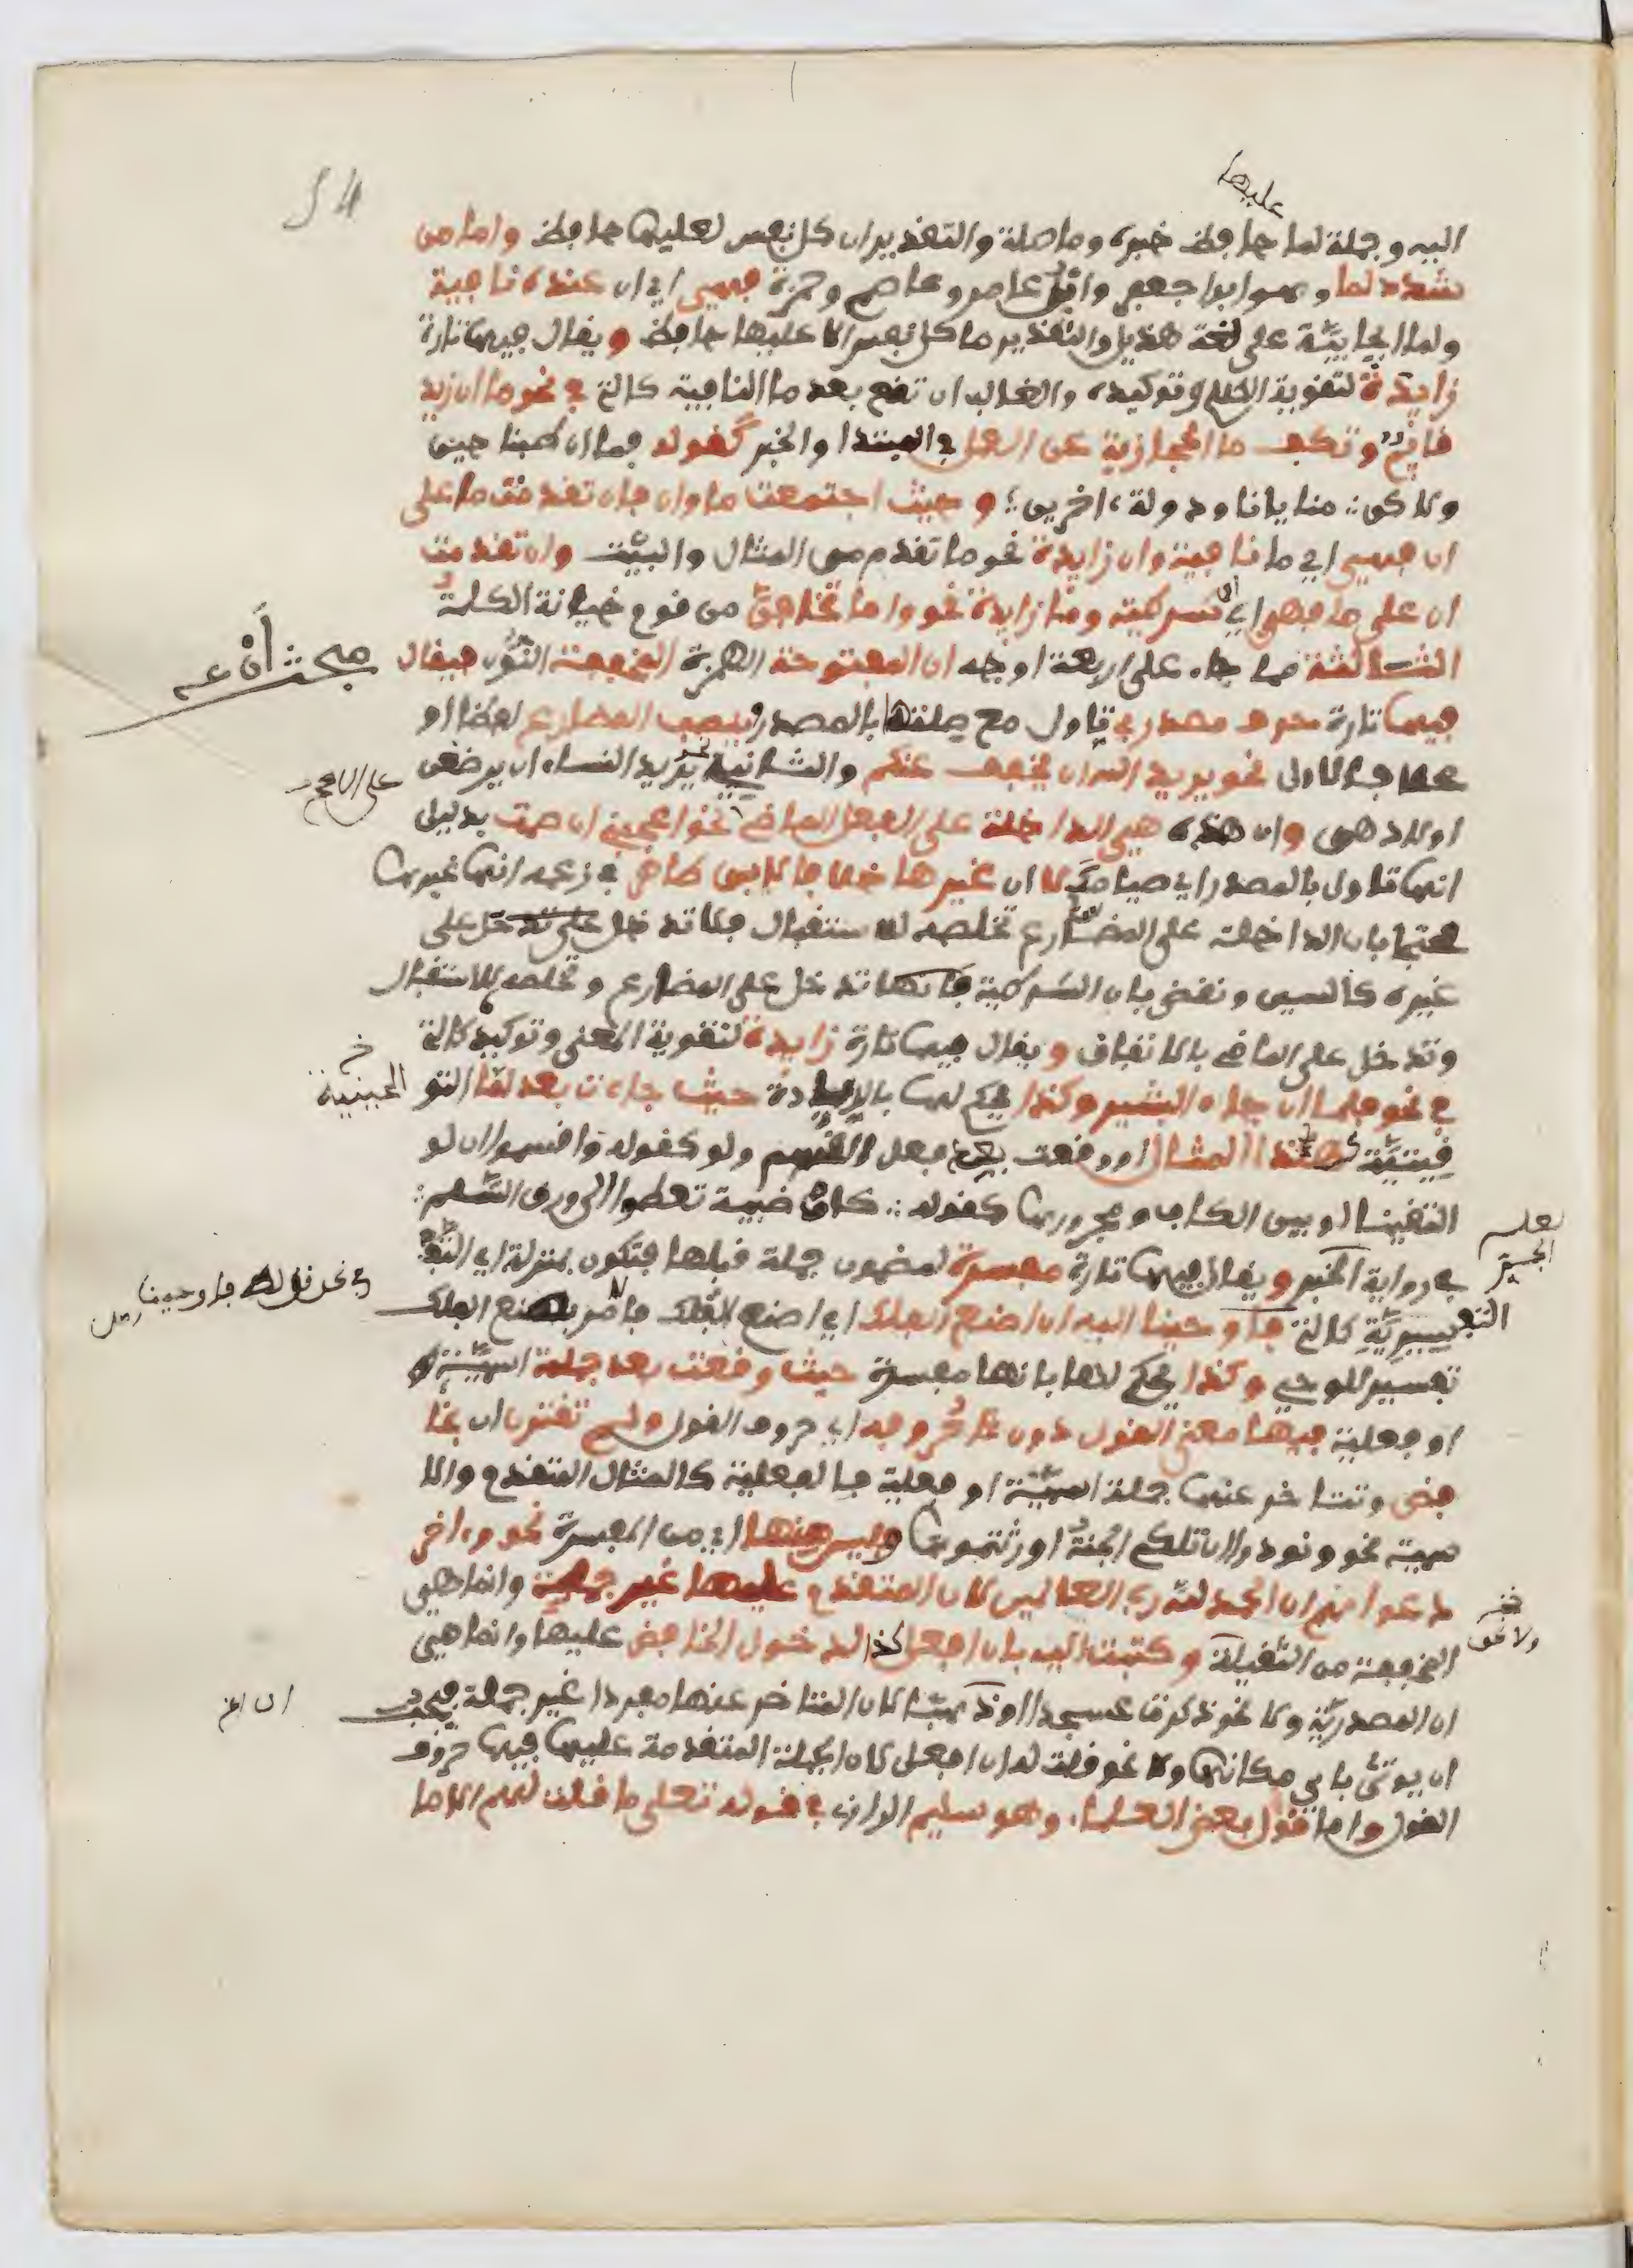 عليها
اليه وجملة لما حافظ خبره وما صلة والتقدير ان كل نفس لعليها حافظ واما من
شدد لما وهو ابو جعفر وابن عامر وعاصم وحمزة فهي اي ان عنده نافية
ولما ايجابية على لغة هذيل والتقدير ما كل نفس الا عليها حافظ ويقال فيها تارة
زايدة لتقوية الكلام وتوكيده والغالب ان تقع بعد ما النافية كالتي في نحو ما ان زيد
قايم وتكف ما الحجازية عن العمل في المبتدا والخبر كقوله فما ان طبنا جبن
ولاكن منايانا ودولة ءاخرين وحيث اجتمعت ما وان فان تقدمت ما على
ان فهي اي ما نافية وان زايدة نحو ما تقدم من المثال والبيت وان تقدمت
ان على ما فهي اي ان شرطية وما زايدة نحو واما تخافن من قوم خيانة الكلمة
الثالثة مما جاء على اربعة اوجه ان المفتوحة الهمزة المخففة النون فيقال
مبحث أن
فيها تارة حرف مصدري تاول مع صلتها بالمصدر وينصب المضارع لفظا او
محلا فالاولى نحو يريد الله ان يخفف عنكم والثانية نحو يريد النساء ان يرضعن
على الاصح
اولادهن وان هذه هي الداخلة على الفعل الماضي نحو اعجبني ان صمت بدليل
انها تاول بالمصدر اي صيامك لا ان غيرها خلافا لابن طاهر في زعمه انها غيرها
محتجا بان الداخلة على المضارع تخلصه للاستقبال فلا تدخل على
غيره كالسين ونقض بان الشرطية فانها تدخل على المضارع وتخلصه للاستقبال
وتدخل على الماضي بالاتفاق ويقال فيها تارة زايدة لتقوية المعنى وتوكيده كالتي
في نحو فلما ان جاء البشير وكذا يحكم لها بالزيادة حيث جاءت بعد لما التو
الحينية
قيتية كهذا المثال او وقعت بين فعل القسم ولو كقوله واقسموا ان لو
التقينا او بين الكاف ومجرورها كقوله كان ضبية تعطوا الى ورق السلم
في رواية الجر ويقال فيها تارة مفسرة لمضمون جملة قبلها فتكون بمنزلة اي
لعله
الجر
التفسيرية كالتي فاوحينا اليه ان اصنع الفلك اي اصنع الفلك فالامر بصنع الفلك
في نحو قوله فاوحينا
تفسير للوحي وكذا يحكم لها بانها مفسرة حيث وقعت بعد جملة اسمية
او فعلية فيها معنى القول دون حروفه اي حروف القول ولم تقترن ان بخا
فض وتتاخر عنها جملة اسمية او فعلية فالفعلية كالمثال المتقدم والا
سمية نحو ونودوا ان تلكم الجنة اورثتموها وليس منها اي من المفسرة نحو وءاخر
دعواهم ان الحمد لله رب العالمين لان المتقدم عليها غير جملة وانما هي
المخففة من الثقيلة وكتبت اليه بان افعل كذا لدخول الخافض عليها وانما هي
ولا نحو
ان المصدرية ولا نحو ذكرت عسجدا او ذهبا لان المتاخر عنها مفردا غير جملة فيجب
ان يوتى باي مكانها ولا نحو قلت له ان افعل لان الجملة المتقدمة عليها فيها حروف
القول واما قول بعض العلماء وهو سليم الرازي في قوله تعلى ما قلت لهم الا ما